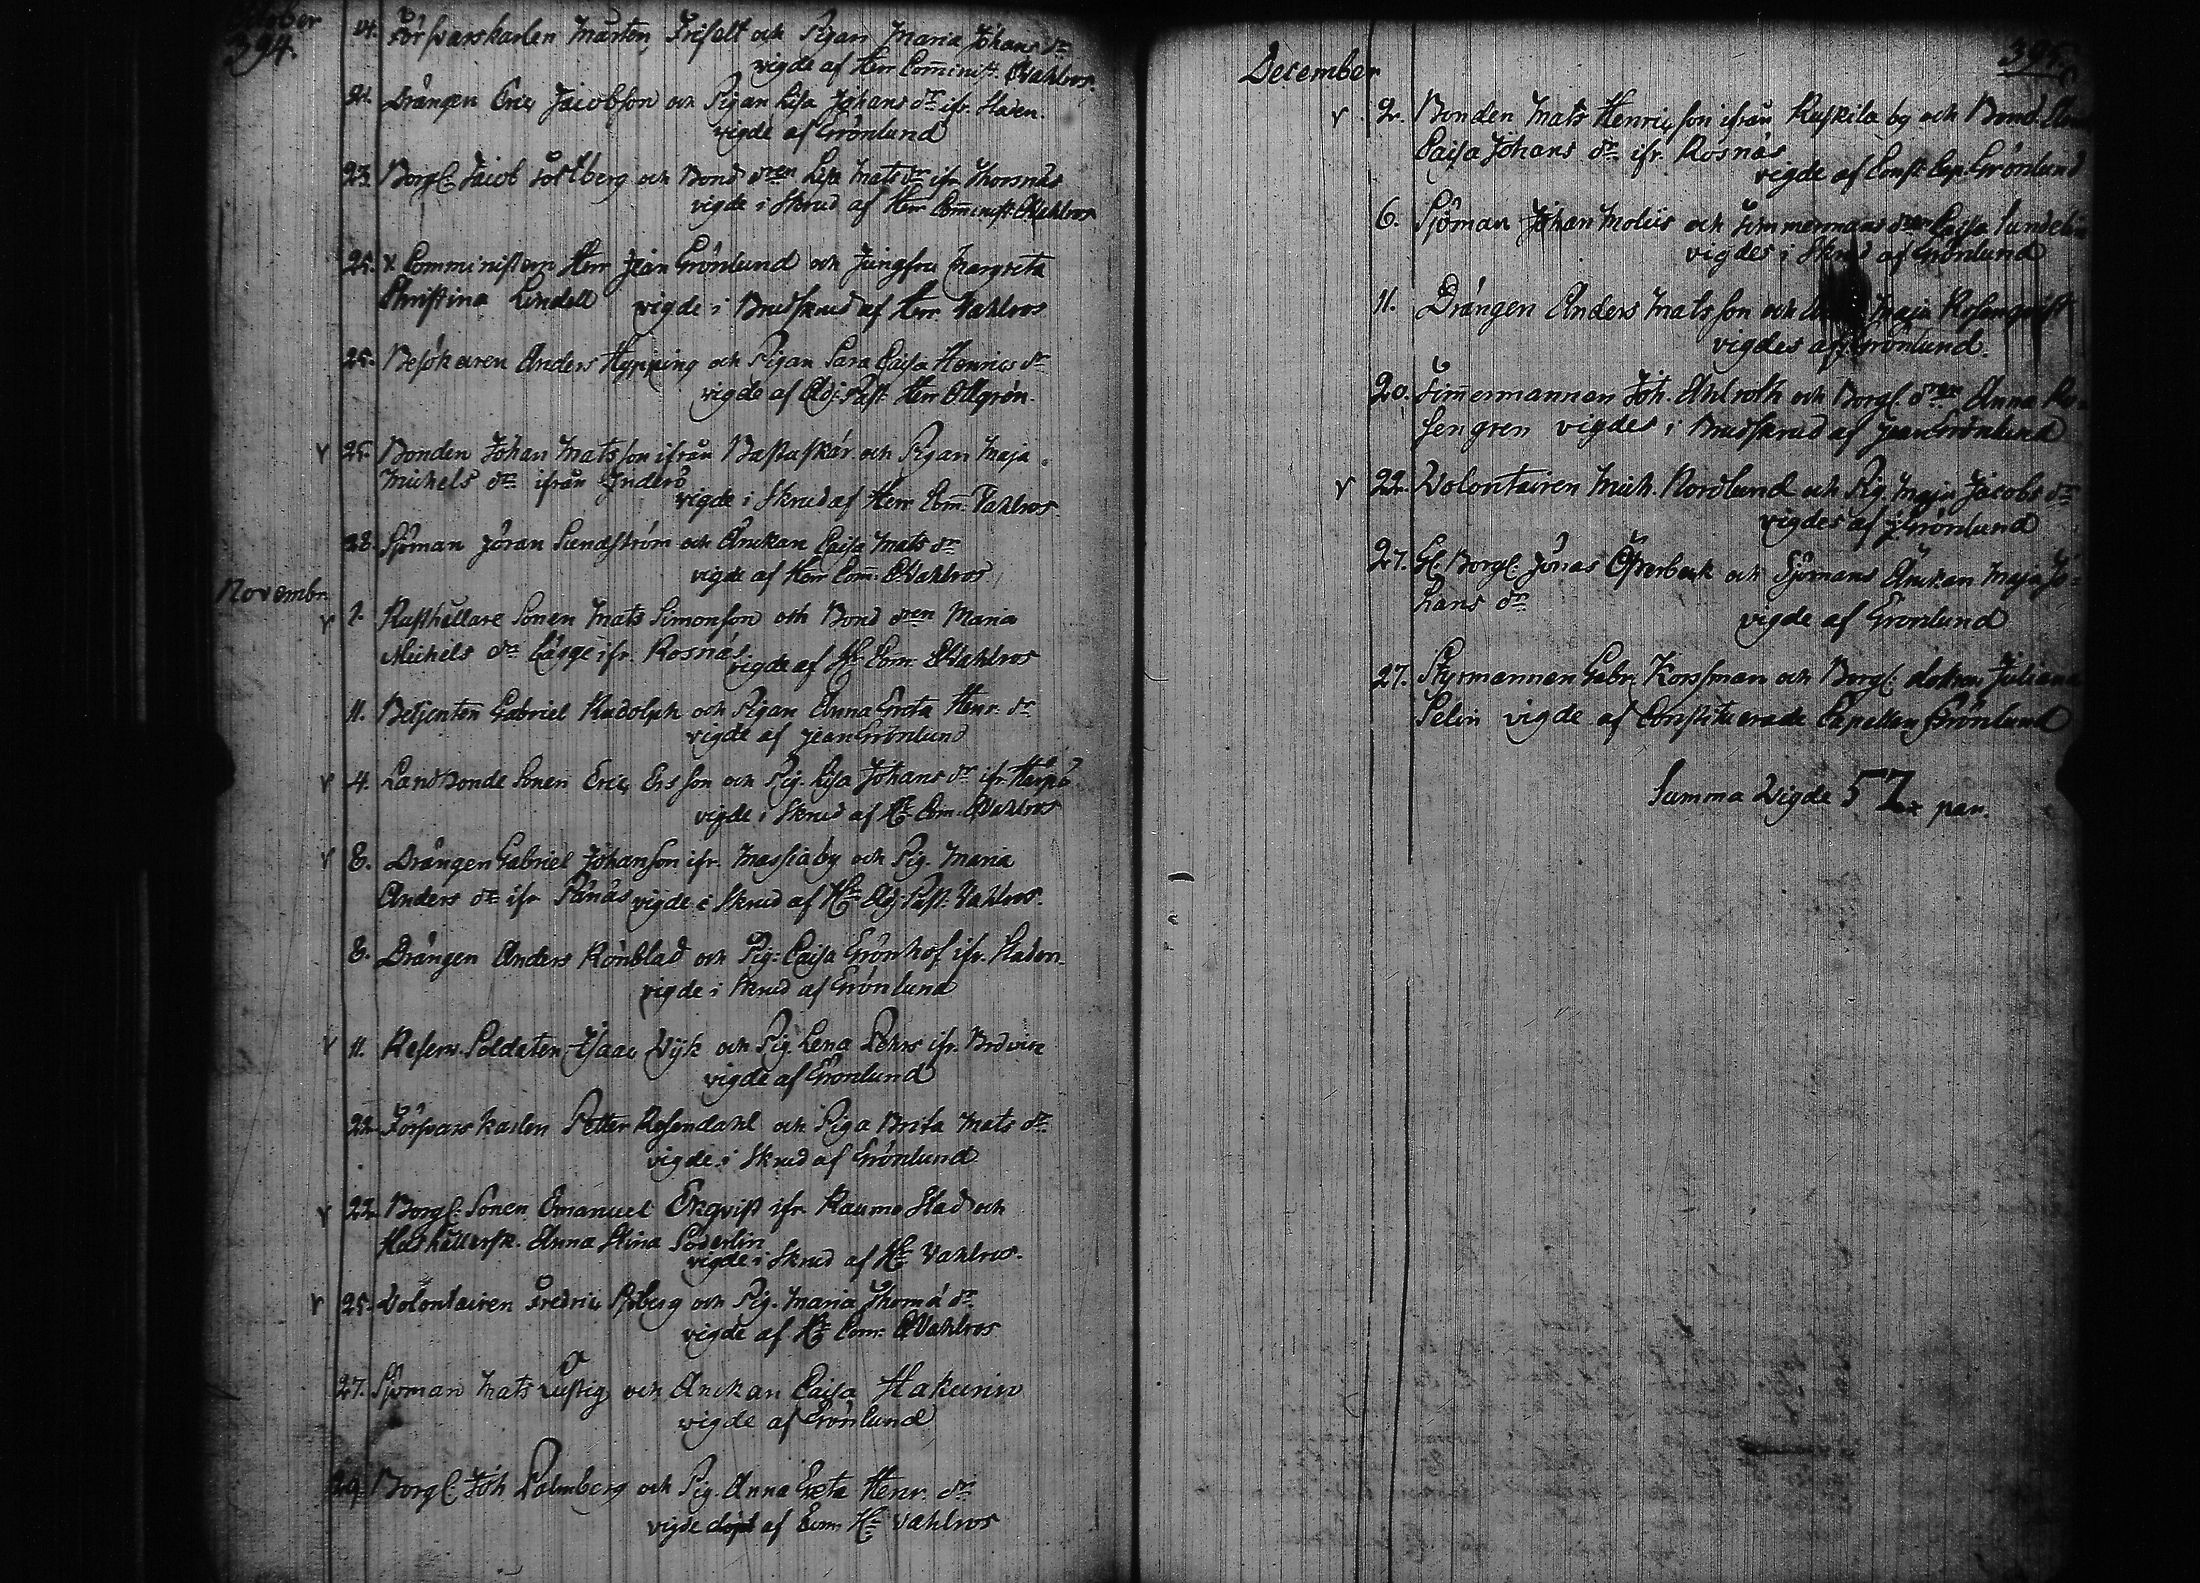 October
394.
14. Försvarskarlen Mårten Frifelt och Pigan Maria Johans dr
vigde af Herr Comminist. Wahlros.
21. Drängen Eric Jacobson och Pigan Lisa Johans dr ifr. Staden.
vigde af Grönlund
23. Borgl: Jacob och Bond dren Lisa Mats dr ifr. Thorsnäs
vigde i Skrud af Herr Comminist. Wahlros
25. x Comministern Herr Jean Grönlund och Jungfru Margreta
Christina Lindell vigde i Brudskrud af Herr Vahlros
25. Besökaren Anders Hypping och Pigan Sara Caisa Henrics dr
vigde af Adj: Past: Herr
v 25. Bonden Johan Matsson ifrån Bastaskär och Pigan Maja
Michels dr ifrån Inderö
vigde i Skrud af Herr Com: Vahlros.
28. Sjöman Jöran Sundström och Änckan Caisa Mats dr
vigde af Herr Com: Wahlros
Novembr.
v 1. Rusthållare Sonen Mats Simonson och Bond dren Maria
Michels dr ifr. Rosnäs
vigde af Hr Com: Wahlros
11. Betjenten Gabriel Rudolph och Pigan Anna Greta Henr. dr
vigde af Jean Grönlund
v 4. Landbonde Sonen Eric Ersson och Pig. Lisa Johans dr ifr. Herpö
vigde i Skrud af Hr Com. Wahlros
v 8. Drängen Gabriel Johanson ifr. Massia by och Pig. Maria
Anders dr ifr Pånäs vigde i Skrud af Hr Adj: Past: Vahlros.
8. Drängen Anders Rönblad och Pig: Caisa Grönhof ifr. Staden.
vigde i Skrud af Grönlund
v 11. Reserv. Soldaten Isaac Wijk och Pig. Lena Pehrs ifr.
vigde af Grönlund
22. Försvarskarlen Petter Rosendahl och Piga Brita Mats dr
vigde i Skrud af Grönlund
v 22. Borgl: Sonen Emanuel Ekqvist ifr. Raumo Stad och
Hushållersk. Anna Stina Söderlin
vigde i Skrud af Hr Vahlros.
v 25. Volontairen Fredric Sjöberg och Pig. Maria Thomæ dr
vigde af Hr Com: Wahlros
27. Sjöman Mats Lustig och Änckan Caisa Hakunin
vigde af Grönlund
29. Borgl: Joh Palmberg och Pig. Anna Greta Henr. dr
vigde af Com. Hr Vahlros
395.
December
v 2. Bonden Mats Henricson ifrån Ruskila by och Bond.
Caisa Johans dr ifr. Rosnäs
vigde af Const. Cap. Grönlund
6. Sjöman Johan Moliis och Timmermans dren Caisa Sundelin
vigdes i Skrud af Grönlund
11. Drängen Anders Matsson och Maja Rosenqvist
vigdes af Grönlund.
20. Timmermannen Joh. Ahlroth och Borgl. dren Anna Ro=
sengren vigdes i Brudskrud af Jean Grönlund
v 22. Volontairen Mich. Nordlund och Pig. Maja Jacobs dr
vigdes af J: Grönlund
27. Gl. Borgl: Jonas Österback och Sjömans Änckan Maja Jo=
hans dr
vigde af Grönlund
27. Styrmannen Gabr. Korsman och Borgl: dottren Juliana
Selin vigde af Constituerade Capellan Grönlund
Summa Vigde 57 par.